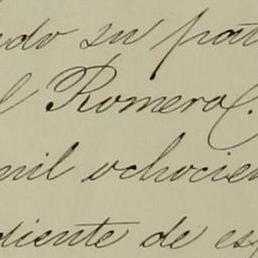 ndo su pat
l Romero.
mil ochocien
diente de esp